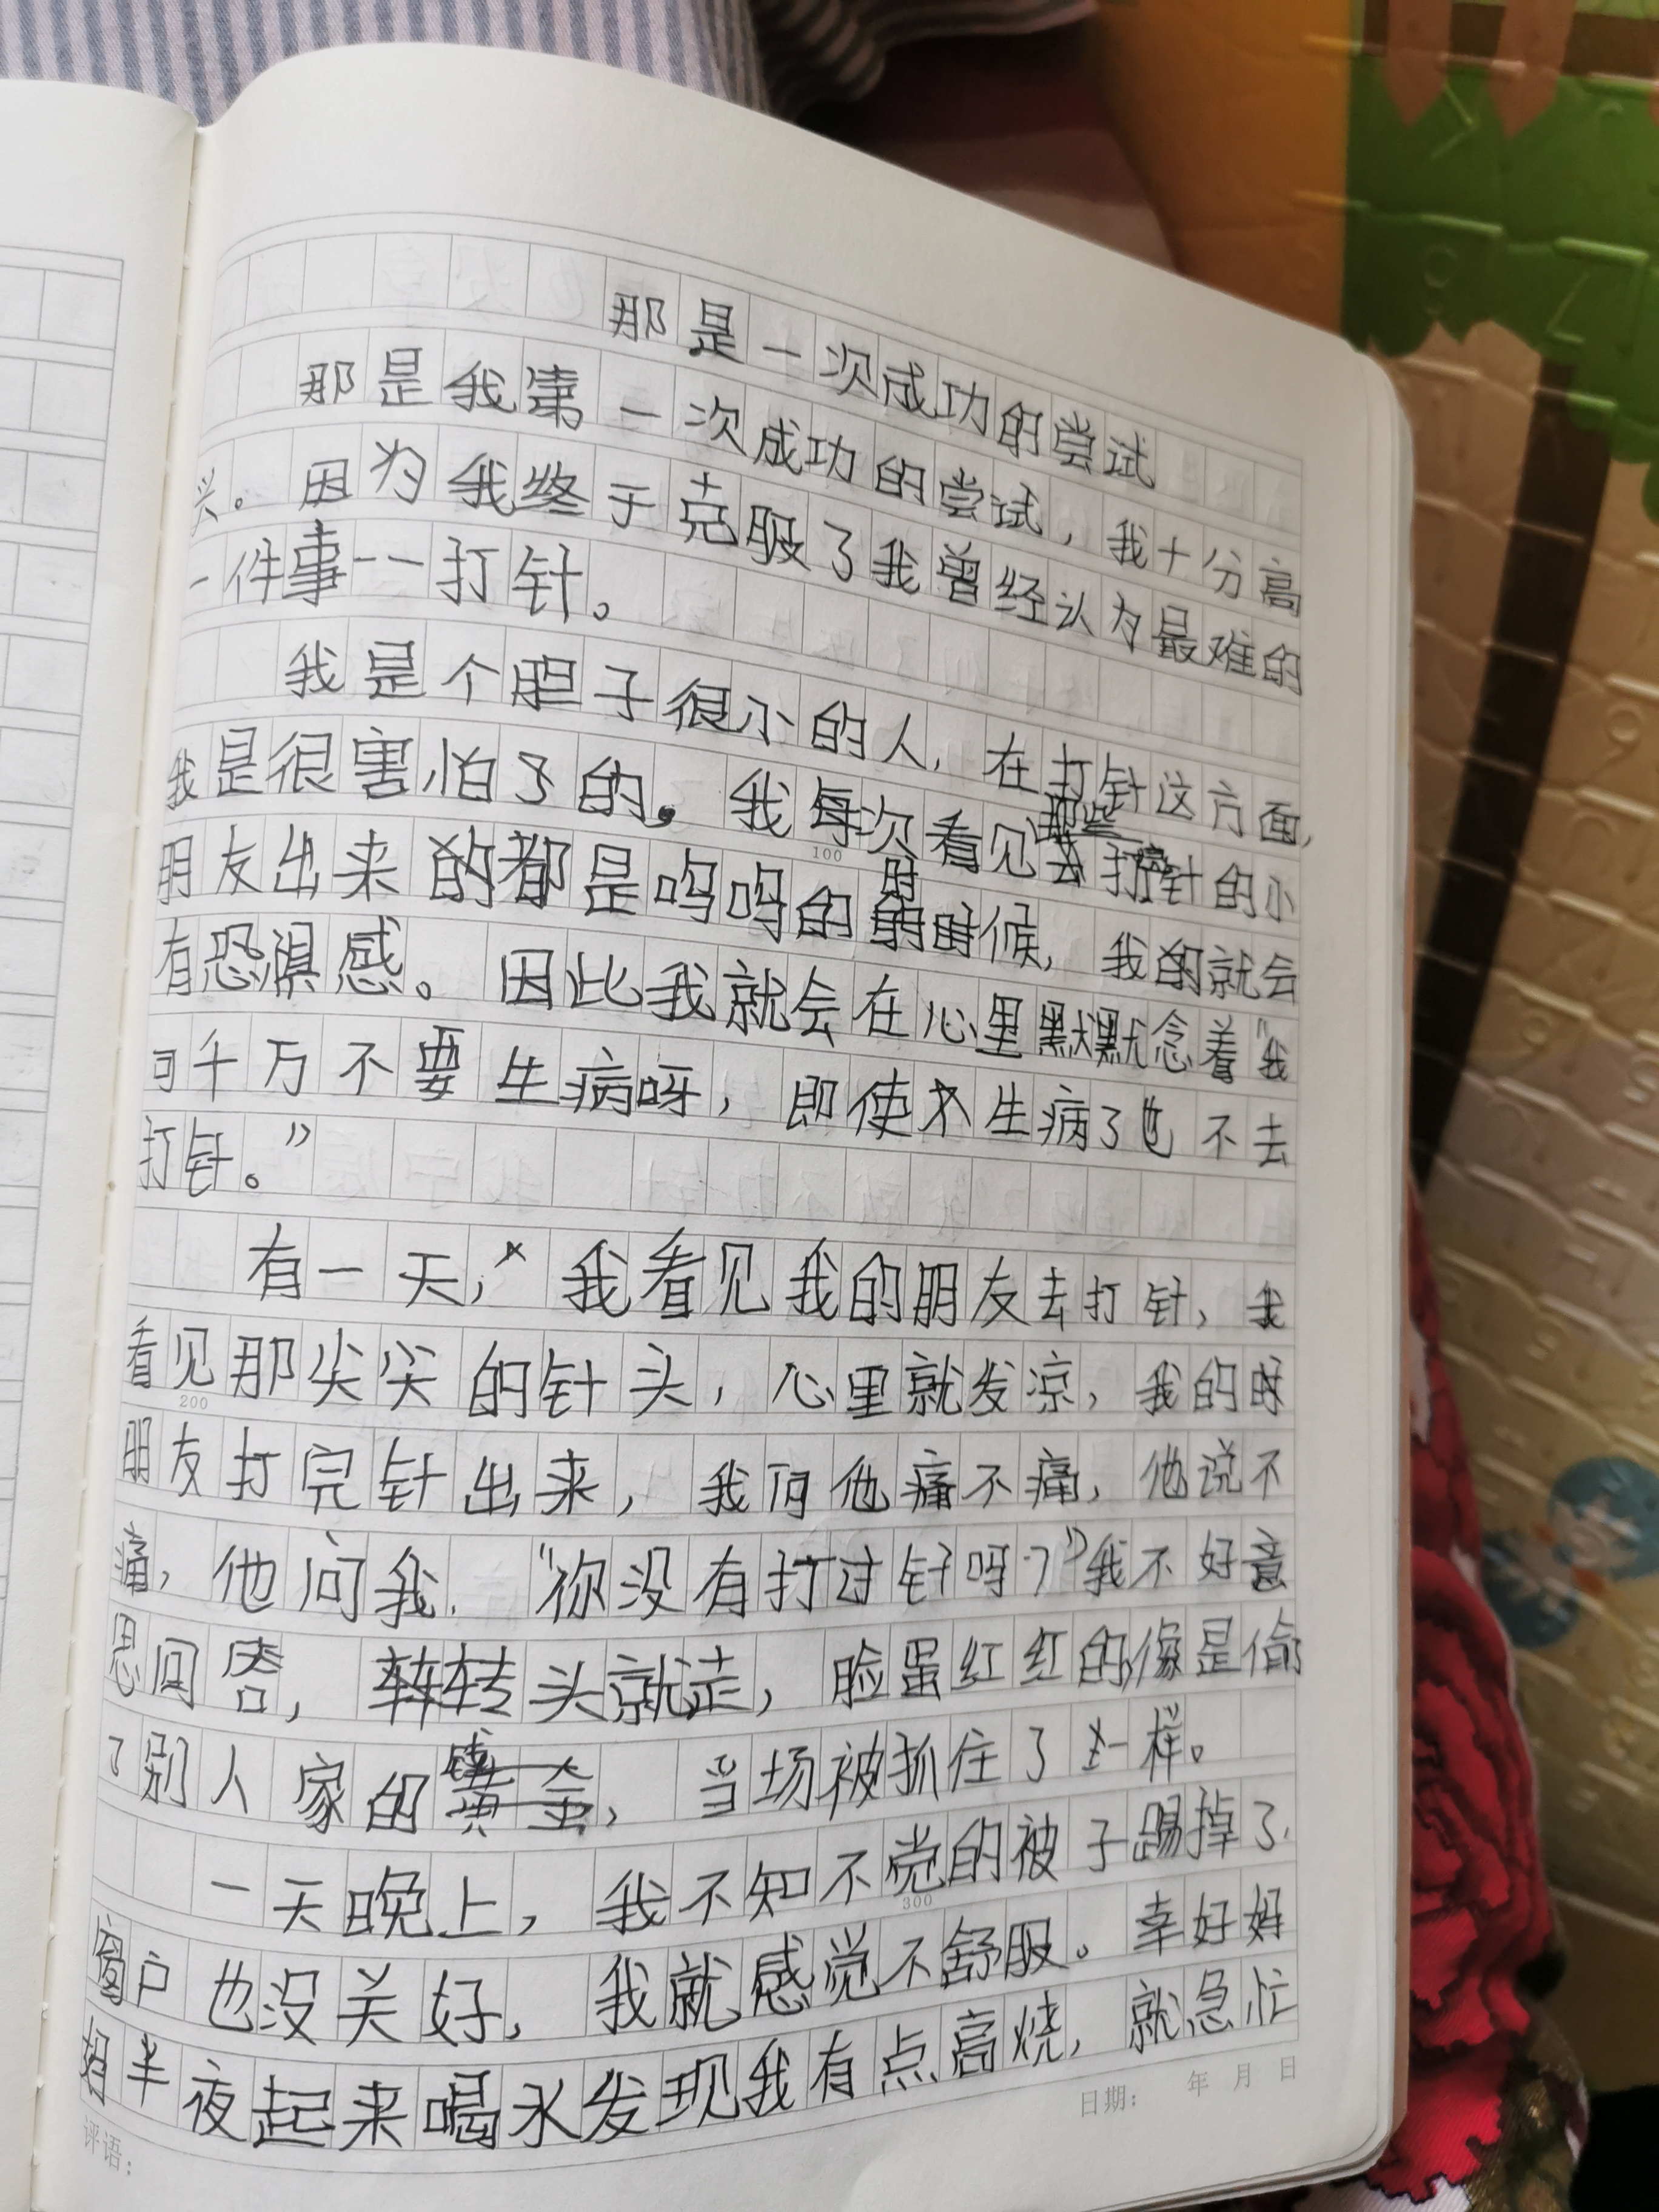 那是一次成功的尝试
那是我第一次成功的尝试，我十分高
兴。因为我终于克服了我曾经认为最难的
一件事——打针。
我是个胆子很小的人，在打针这方面，
我是很害怕了的。我每次看见那些去打完针的小
朋友出来的都是呜呜的的时候，我的就会
有恐惧感。因此我就会在心里默默念着“我
可千万不要生病呀，即使生病了也不去
打针。”
有一天，我看见我的朋友去打针，我
看见那尖尖的针头，心里就发凉，我的
朋友打完针出来，我问他痛不痛，他说不
痛，他问我．“你没有打过针呀？”我不好意
思回答，转头就走，脸蛋红红的像是偷
了别人家的钱，当场被抓住了一样。
一天晚上，我不知不觉的被子踢掉了，
窗户也没关好，我就感觉不舒服。幸好妈
妈半夜起来喝水发现我有点高烧，就急忙
100
200
300
评语：
日期： 年 月 日